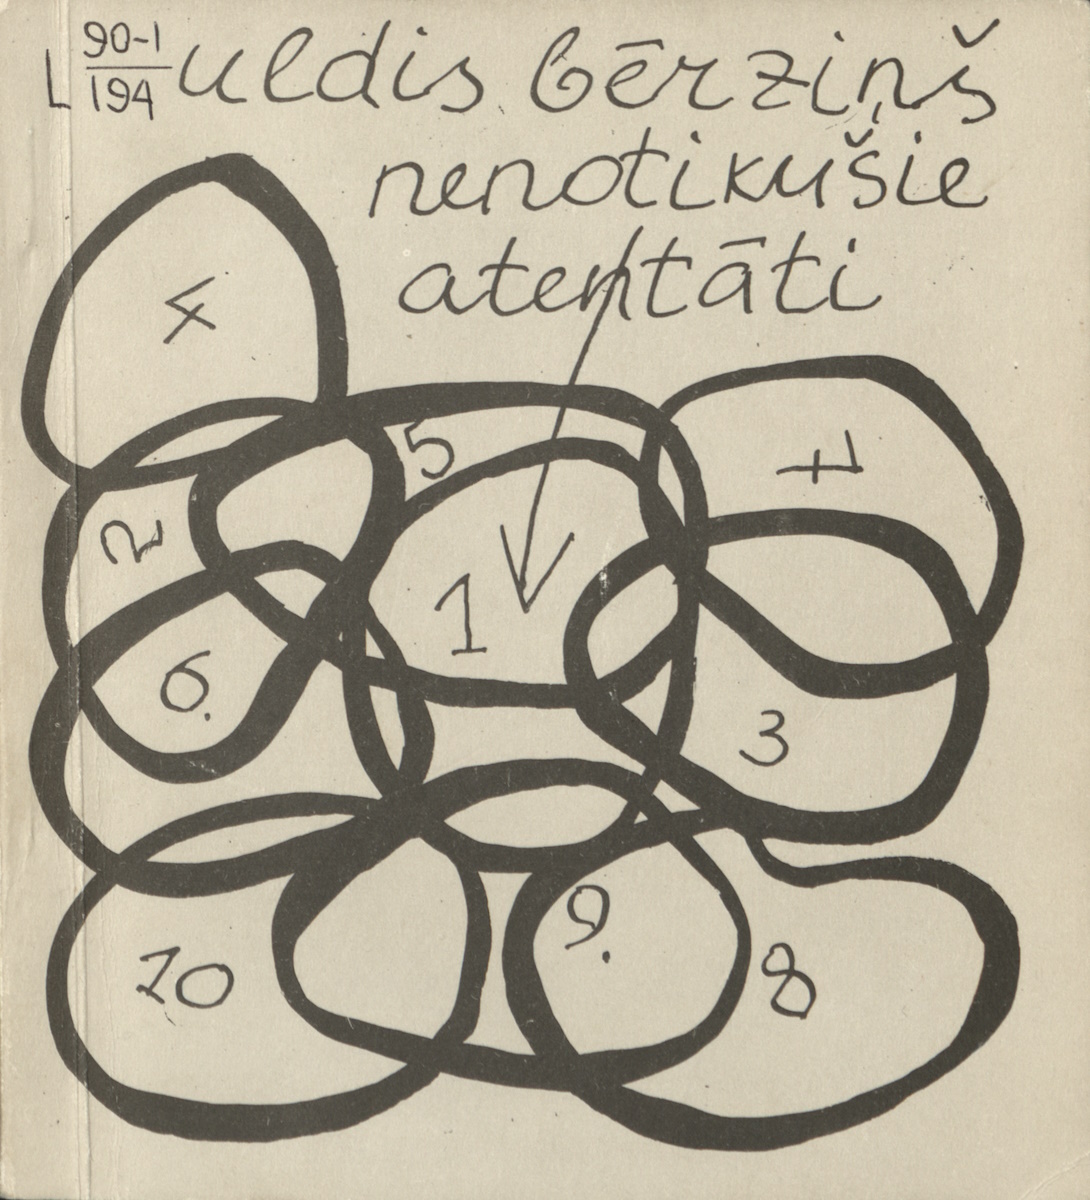 L 90-1/194
uldis bērziņš
nenotikušie
atentāti
4
5
7
2
1
6.
3
9.
10
8